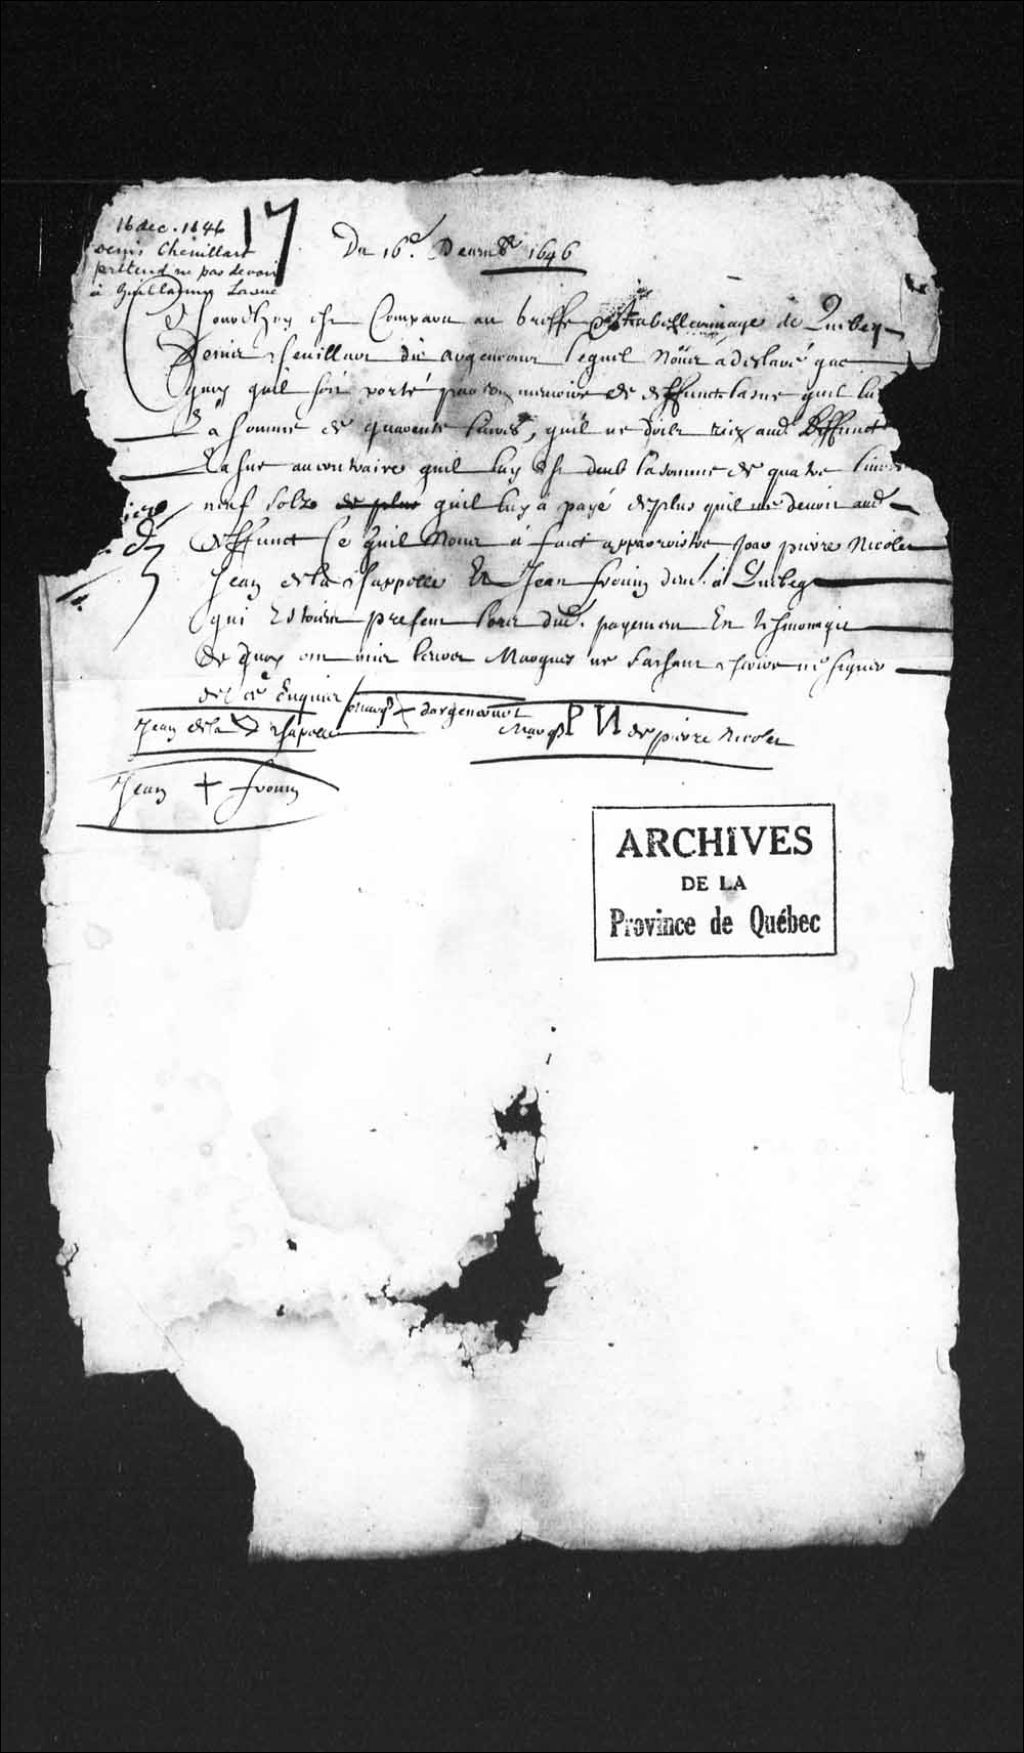 16 dec. 1646
17
Denis Chevillart
pretend ne pas devoir
à Guillaume Lasne
Du 16e. Decemb. 1646
Jourdhuy est Comparu au Greffe & tabellionnage de Quebeq
Denis Chevillart dit argencourt lequel Nous a declaré que
quoy quil soit porté par un memoire de deffunct lasne quil luy
la somme de quarante livres, quil ne doibt rien aud. deffunct
Lasne au contraire quil luy est deub la somme de quatre livres
neuf solz de plus quil luy a payé deplus quil ne devoit aud.
deffunct Ce quil Nous a faict apparoistre par pierre Nicolet
Jean dela chappelle Et Jean frouin dem. a Quebeq
qui Estoient presens lors dud. payement En tesmoin
De quoy ont mis leurs Marques ne sachant escrire ne signer
de ce Enquis
marq dargencourt
Jean dela chapelle
Marq P N de pierre Nicolet
Jean + frouin
ARCHIVES
DE LA
Province de Québec